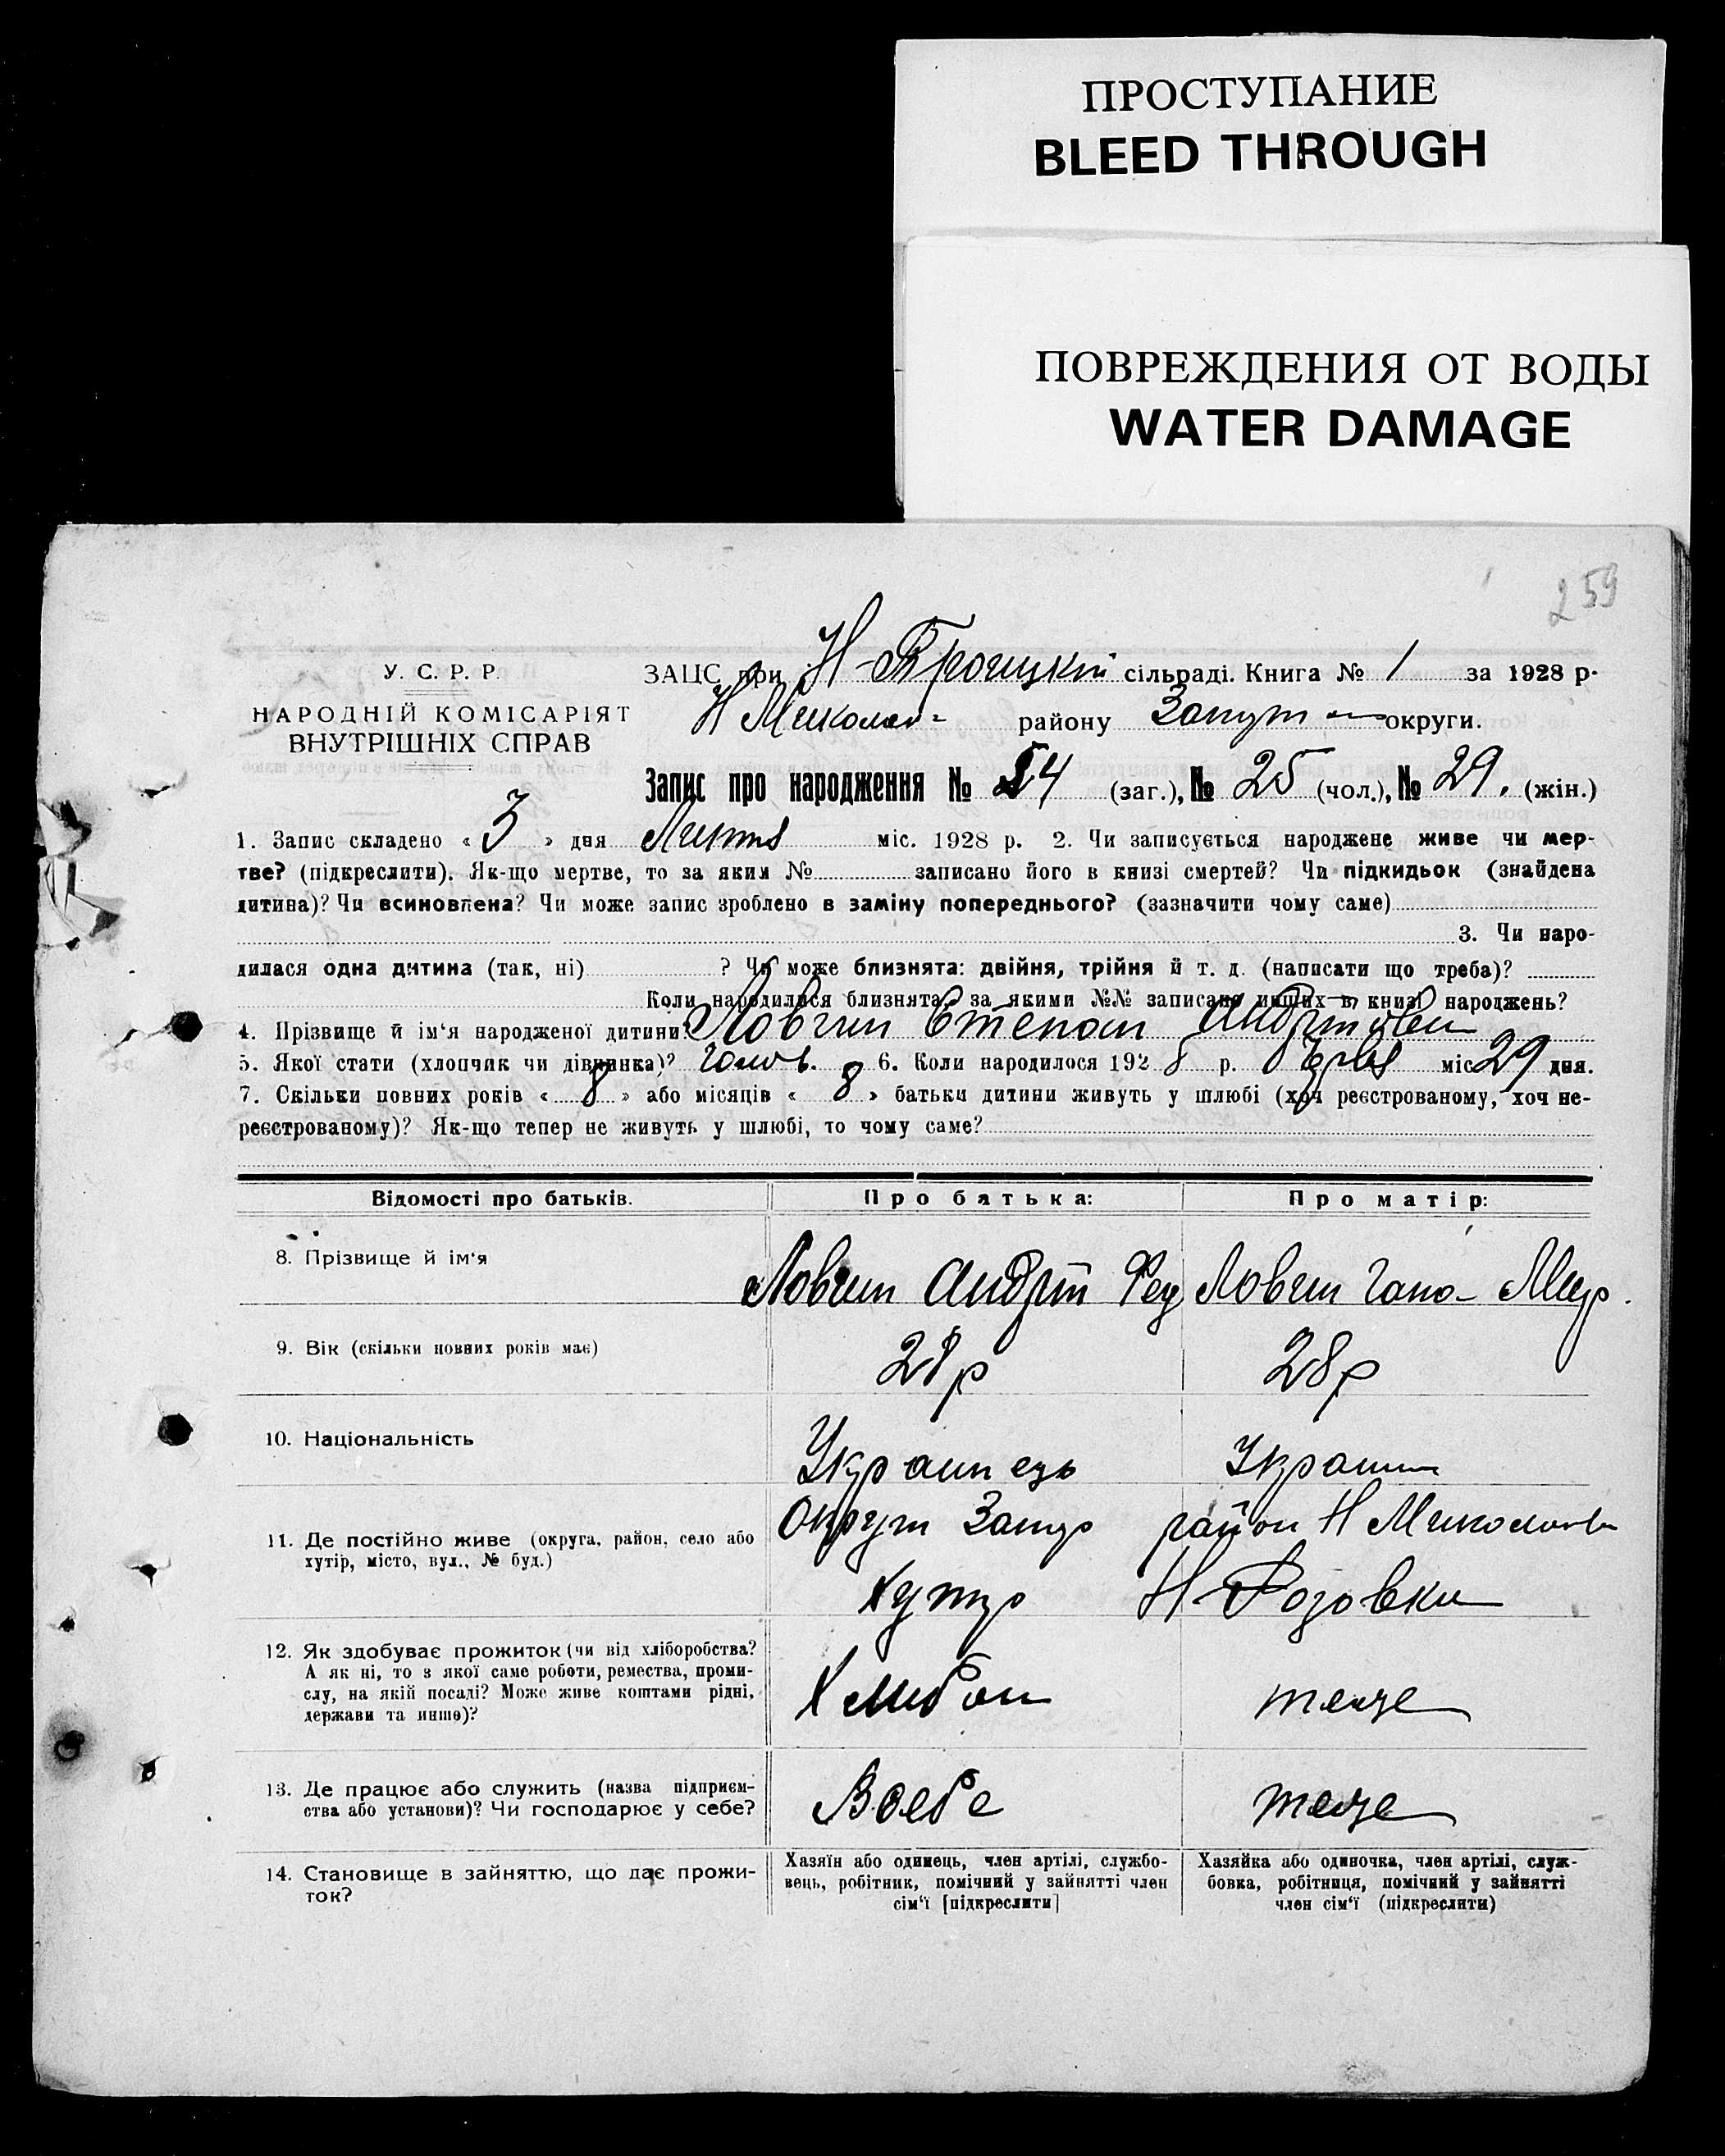 ПРОСТУПАНИЕ
BLEED THROUGH
ПОВРЕЖДЕНИЯ ОТ ВОДЫ
WATER DAMAGE
259
У. С. Р. Р.
НАРОДНІЙ КОМІСАРІЯТ
ВНУТРІШНІХ СПРАВ
ЗАЦС при Н-Троицкій сільраді. Книга № 1 за 1928 р.
Н Миколаї- району Запут округи.
Запис про народження № 54 (заг.), № 25 (чол.), № 29. (жін.)
1. Запис складено « 3 » дня Липня міс. 1928 р. 2. Чи записується народжене живе чи мер-
тве? (підкреслити). Як-що мертве, то за яким № записано його в книзі смертей? Чи підкидьок (знайдена
дитина)? Чи всиновлена? Чи може запис зроблено в заміну попереднього? (зазначити чому саме)
3. Чи наро-
дилася одна дитина (так, ні) ? Чи може близнята: двійня, трійня й т. д. (написати що треба)?
Коли народилися близнята, за якими №№ записано инших в книзі народжень?
4. Прізвище й ім'я народженої дитини? Ловчин Степан
5. Якої стати (хлопчик чи дівчинка)? 6. Коли народилося 1928 р. міс 29 дня.
7. Скільки повних років « 8 » або місяців « 8 » батьки дитини живуть у шлюбі (хоч реєстрованому, хоч не-
реєстрованому)? Як-що тепер не живуть у шлюбі, то чому саме?
Відомості про батьків. Про батька: Про матір:
8. Прізвище й ім'я Ловчин Андрій Фед Ловчин Гано-
9. Вік (скільки повних років має) 28р 28р
10. Національність Украинець Украин
11. Де постійно живе (округа, район, село або
хутір, місто, вул., № буд.)
Округи Запор район Н Миколаев
Хутор Н-Розовки
12. Як здобуває прожиток (чи від хліборобства?
А як ні, то з якої саме роботи, ремества, проми-
слу, на якій посаді? Може живе коштами рідні,
держави та инше)?
Хлибоп теоже
13. Де працює або служить (назва підприєм-
ства або установи)? Чи господарює у себе?
Всебе теоже
14. Становище в зайняттю, що дає прожи-
ток?
Хазяїн або одинець, член артілі, службо-
вець, робітник, помічний у зайнятті член
сім'ї [підкреслити]
Хазяйка або одиночка, член артілі, служ-
бовка, робітниця, помічний у зайнятті
член сім'ї (підкреслити)